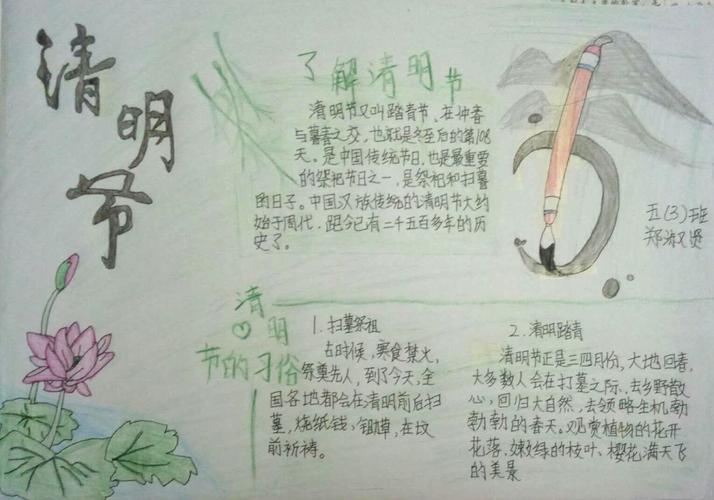 清明节
了解清明节
清明节又叫踏青节，在仲春
与暮春之交，也就是冬至后的第108
天。是中国传统节日，也是最重要
的祭祀节日之一，是祭祖和扫墓
的日子。中国汉族传统的清明节大约
始于周代，距今已有二千五百多年的历
史了。
五(3)班
郑淑贤
清明
节的习俗
1.扫墓祭祖
古时候，寒食禁火，
祭奠先人，到了今天，全
国各地都会在清明前后扫
墓，烧纸钱、锄草，在坟
前祈祷。
2.清明踏青
清明节正是三四月份，大地回春，
大多数人会在扫墓之际，去乡野散
心，回归大自然，去领略生机勃
勃勃的春天。观赏植物的花开
花落，嫩绿的枝叶、樱花满天飞
的美景